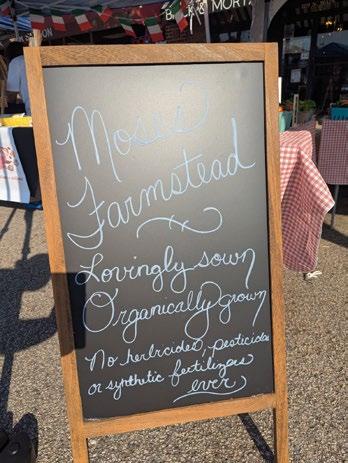 Moses
Farmstead
Lovingly sown
Organically grown
No herbicides, pesticides
or synthetic fertilizers
ever